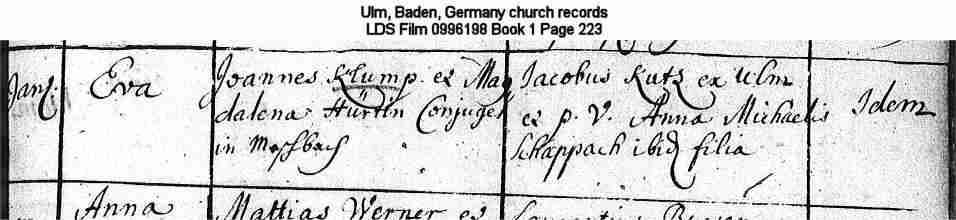 Ulm, Baden, Germany church records
LDS Film 0996198 Book 1 Page 223
Eva
Joannes Klump et Mag
dalena Hürtin Conjuges
in Moschbach
Jacobus Kutz ex Ulm
et p. V. Anna Michaelis
Schappach ibid filia
Idem
Anna
Mattias Werner et